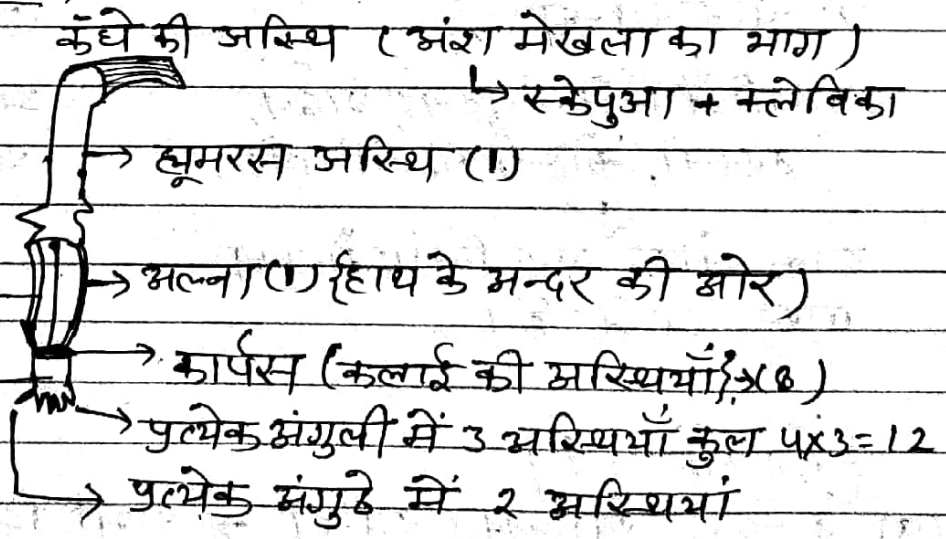 कँधे की अस्थि (अंश मेखला का भाग)
↳ स्केपुआ + क्लेविका
→ ह्यूमरस अस्थि (1)
→ अल्ना (1) (हाथ के अन्दर की ओर)
→ कार्पस (कलाई की अस्थियाँ) → (8)
→ प्रत्येक अंगुली में 3 अस्थियाँ कुल 4×3=12
→ प्रत्येक अंगुठे में 2 अस्थियां